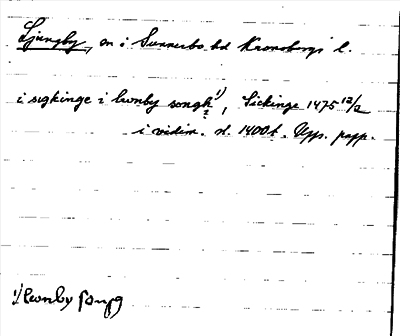 Ljungby, sn i Sunnerbo hd Kronobergs l.
i sigkinge i liwnby songh 1), Sickinge 1475 12/2
i vidim. sl. 1400t. Upp. papp.
1) liwnby